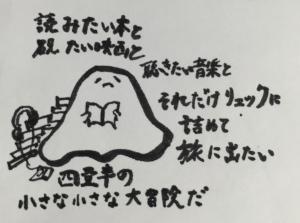 読みたい本と
観たい映画と
聴きたい音楽と
それだけリュックに
詰めて
旅に出たい
四畳半の
小さな小さな大冒険だ